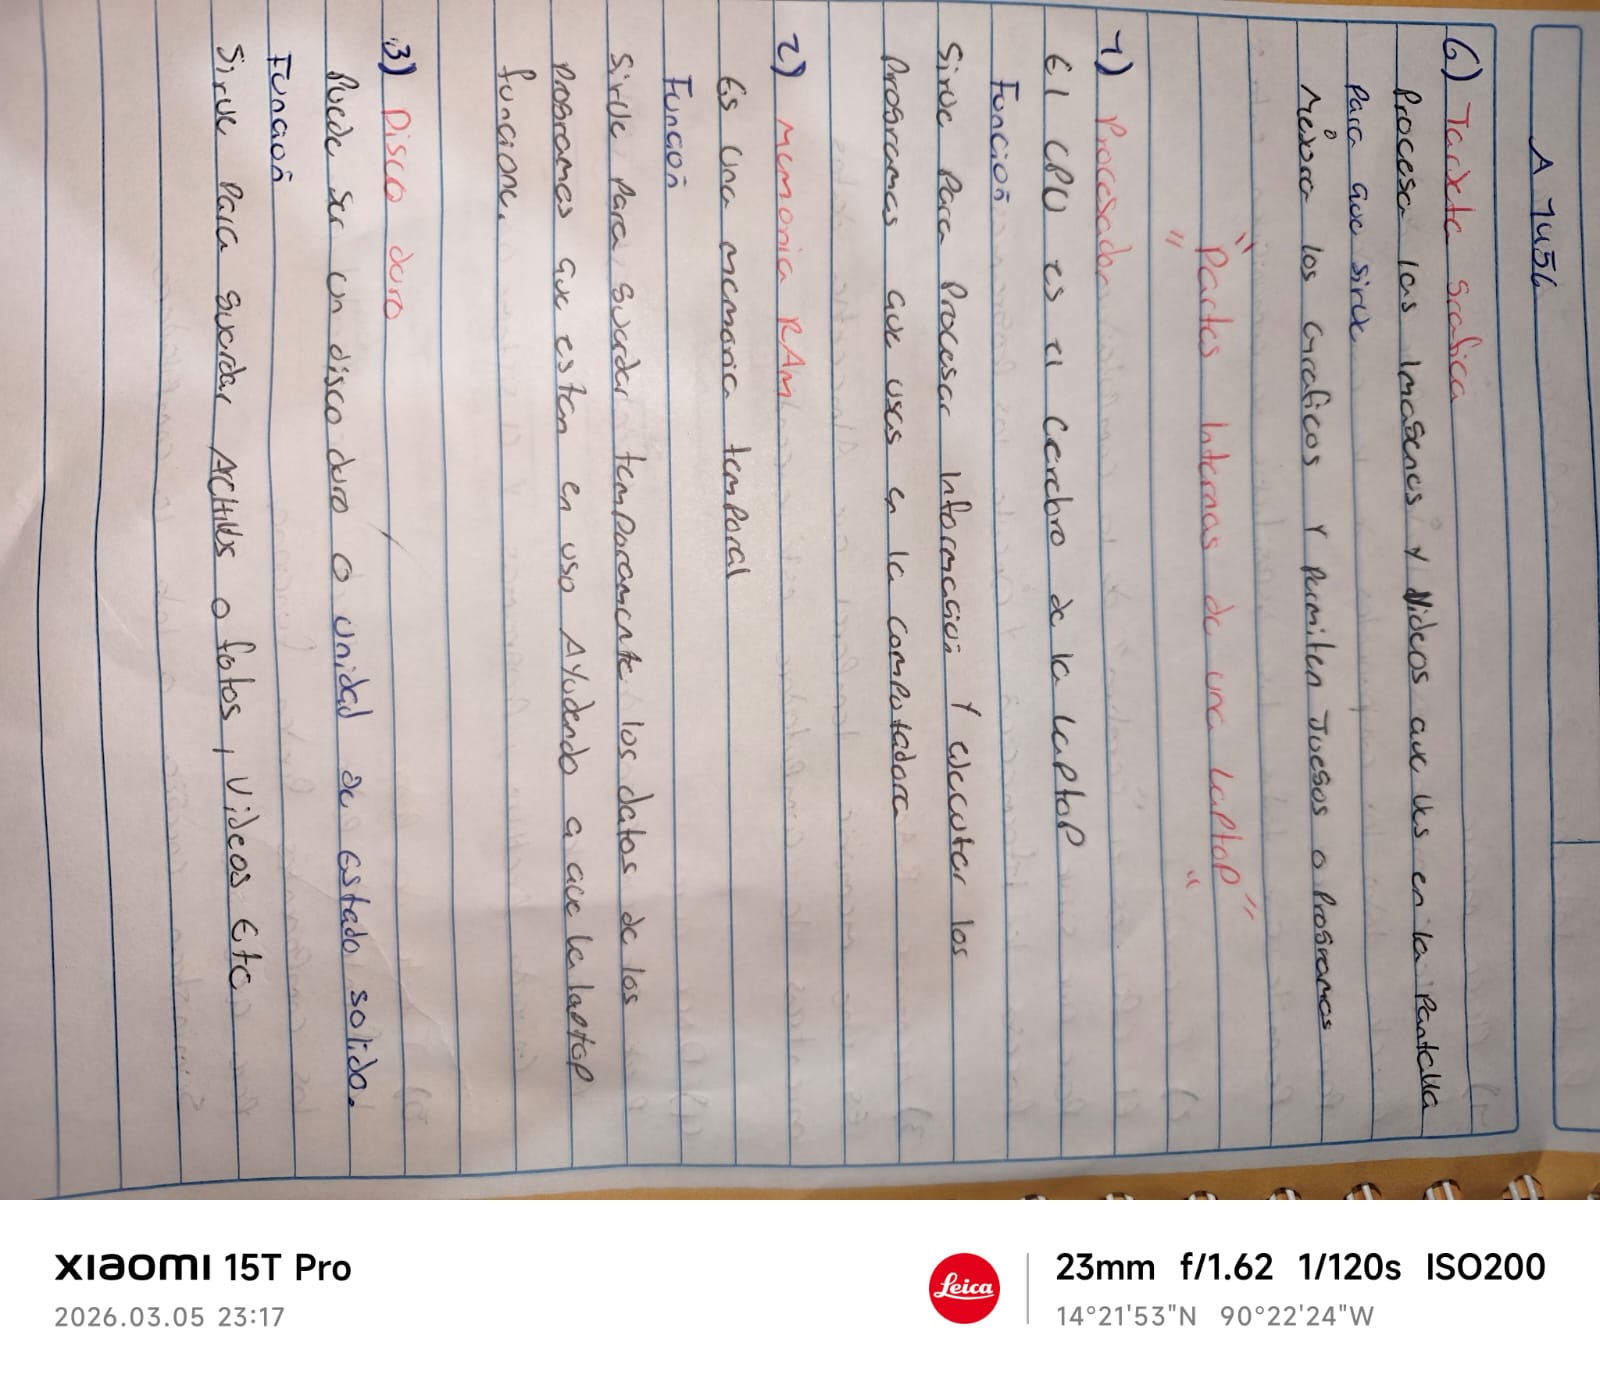 A 7u56
6) Tarxta Grafica
Procesa las Imagenes y Videos que Ves en la Pantalla
Para que sirve
Mejora los Graficos Y Permiten Juegos o Programas
"Partes Internas de una Laptop"
1) Procesador
El CPU es el Cerebro de la Laptop
Función
Sirve Para Procesar Información Y ejecutar los
Programas que usas en la computadora
2) Memoria RAM
Es una memoria temporal
Función
Sirve Para guardar temporamente los datos de los
Programas que estan en uso Ayudando a que la laptop
funcione.
3) Disco duro
Puede ser un disco duro o unidad de estado solido.
Función
Sirve Para guardar o fotos, videos Etc
XIAOMI 15T Pro
2026.03.05 23:17
Leica
23mm f/1.62 1/120s ISO200
14°21'53"N 90°22'24"W